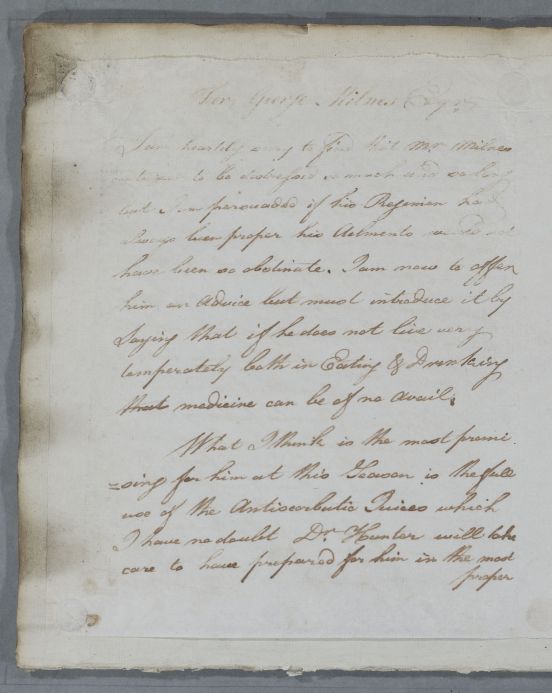 For George Milnes Esqr
I am heartily sorry to find that Mr Milnes
to be distressed so much and so long
but I am perswaded if his Regimen had
always been proper his Ailments would not
have been so obstinate. I am now to offer
him an Advice but must introduce it by
Saying that if he does not live very
temperately both in Eating & Drinking
that medicine can be of no avail.
What I think is the most promi
=sing for him at this Season is the full
use of the Antiscorbutic Juices which
I have no doubt Dr Hunter will take
care to have prepared for him in the most
proper